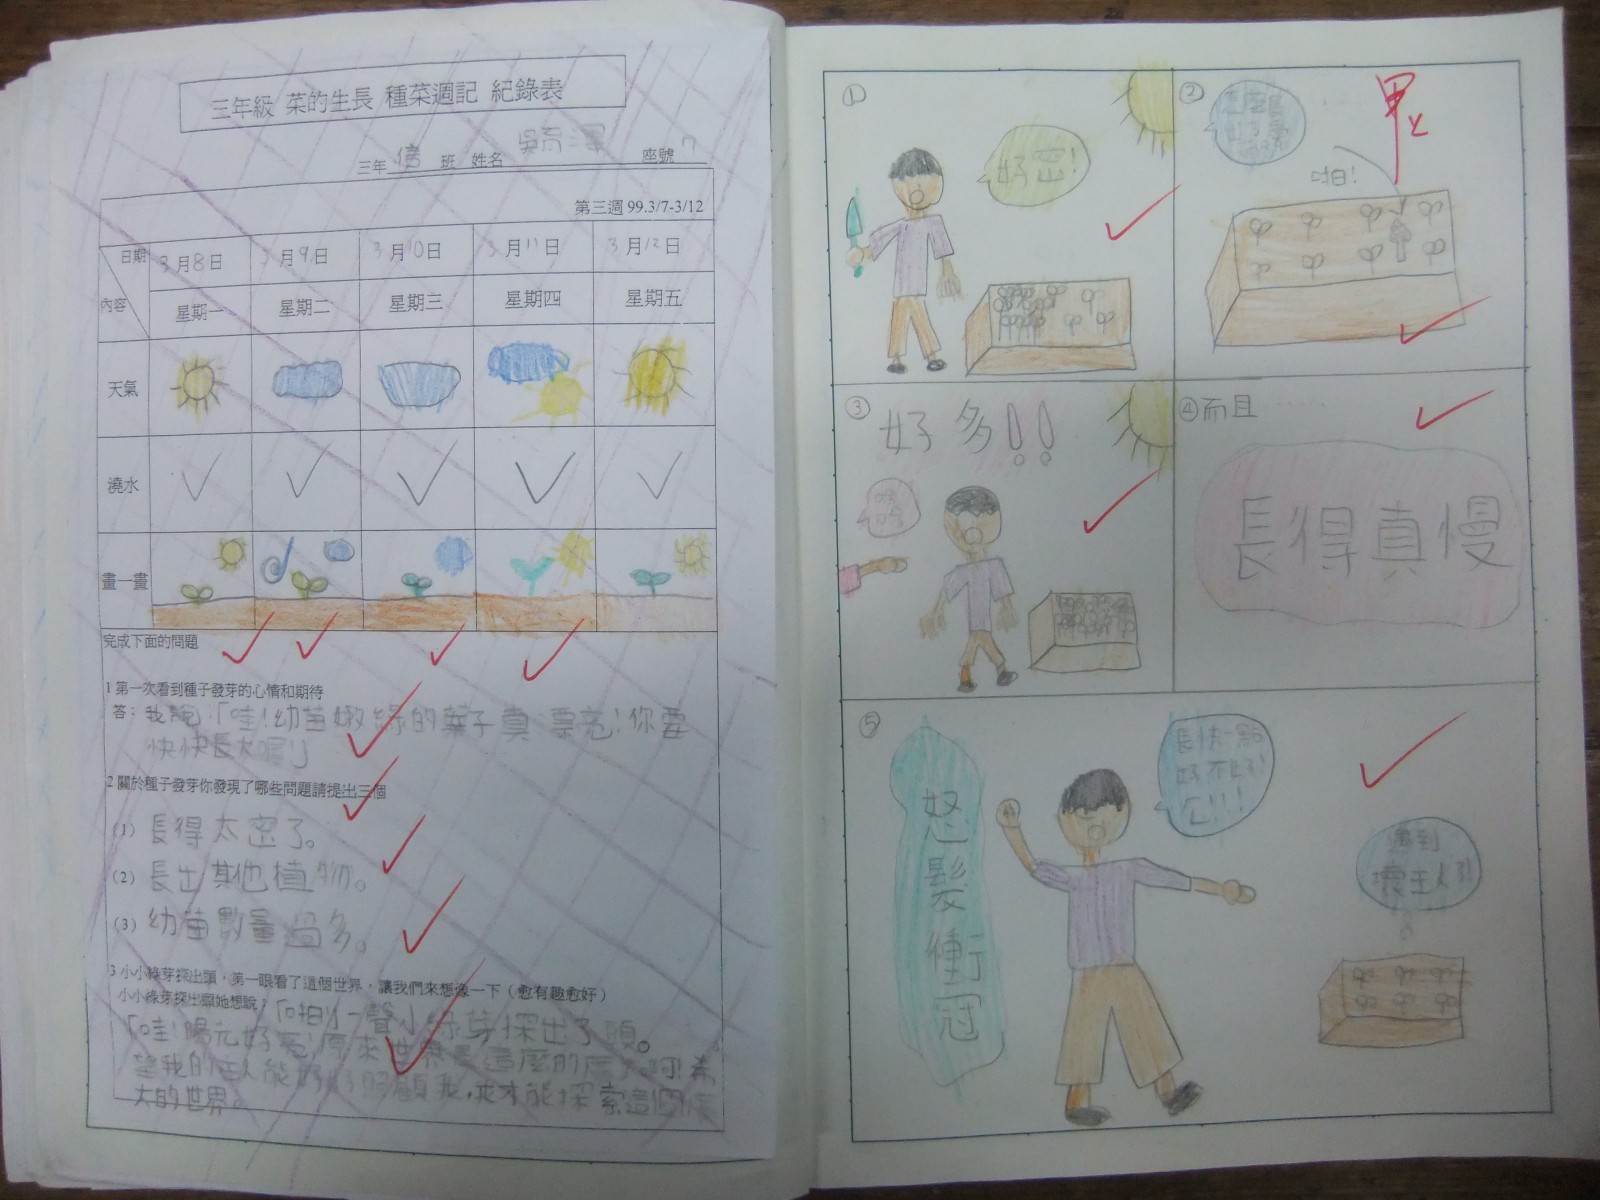 三年級 菜的生長 種菜週記 紀錄表
三年 信 班 姓名 吳 澤 座號 7
第三週 99.3/7-3/12
日期 3月8日 3月9日 3月10日 3月11日 3月12日
內容 星期一 星期二 星期三 星期四 星期五
天氣
澆水
畫一畫
完成下面的問題
1 第一次看到種子發芽的心情和期待
答：我說:「哇!幼苗嫩綠的葉子真漂亮!你要
快快長大喔!」
2 關於種子發芽你發現了哪些問題請提出三個
(1) 長得太密了。
(2) 長出其他植物。
(3) 幼苗數量過多。
3 小小綠芽探出頭，第一眼看了這個世界，讓我們來想像一下（愈有趣愈好）
小小綠芽探出頭她想說：「啪!」一聲小綠芽探出了頭。
「哇!陽光好 原來世界是這麼的 啊!希
望我的主人能好好照顧我,我才能探索這個
大的世界。
①
好密!
②
啪!
甲上
③ 好多!!
④而且……
長得真慢
⑤
怒髮衝冠
長快一點
好不好!
遇到
壞主人了!